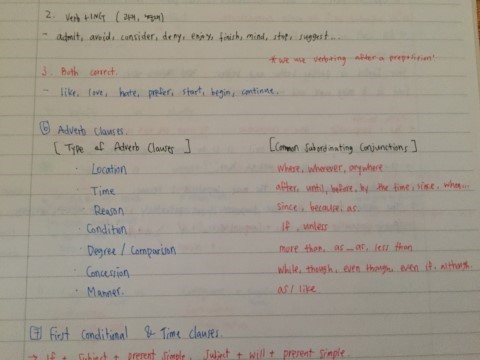 2. Verb + ING
- admit, avoid, consider, deny, enjoy, finish, mind, stop, suggest...
* we use verb+ing after a preposition!
3. Both correct.
- like, love, hate, prefer, start, begin, continue.
⑥ Adverb Clauses.
[ Type of Adverb Clauses ] [Common Subordinating Conjunctions]
· Location where, wherever, anywhere
· Time after, until, before, by the time, since, when...
· Reason since, because, as
· Condition If, unless
· Degree / Comparison more than, as _ as, less than
· Concession while, though, even though, even if, although
· Manner. as / like.
⑦ First Conditional & Time clauses.
→ If + Subject + present simple, Subject + will + present simple